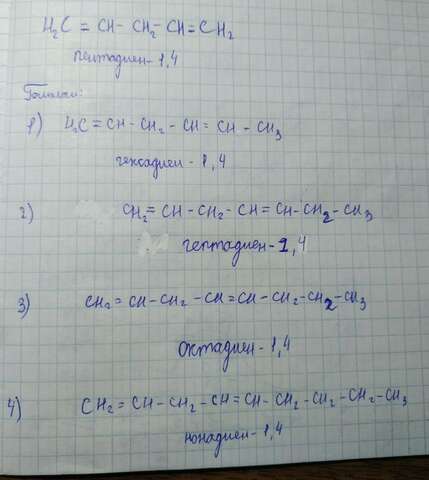 H₂C = CH - CH₂ - CH = CH₂
пентадиен - 1,4
Гомологи:
1) H₂C = CH - CH₂ - CH = CH - CH₃
гексадиен - 1,4
2) CH₂ = CH - CH₂ - CH = CH - CH₂ - CH₃
гептадиен - 1,4
3) CH₂ = CH - CH₂ - CH = CH - CH₂ - CH₂ - CH₃
октадиен - 1,4
4) CH₂ = CH - CH₂ - CH = CH - CH₂ - CH₂ - CH₂ - CH₃
нонадиен - 1,4